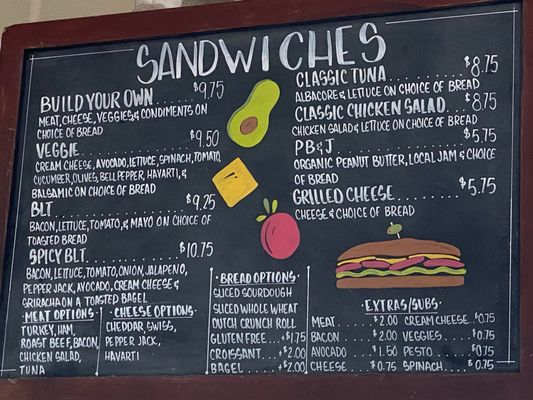 SANDWICHES
BUILD YOUR OWN........$9.75
MEAT, CHEESE, VEGGIES & CONDIMENTS ON
CHOICE OF BREAD
VEGGIE................$9.50
CREAM CHEESE, AVOCADO, LETTUCE, SPINACH, TOMATO,
CUCUMBER, OLIVES, BELL PEPPER, HAVARTI, &
BALSAMIC ON CHOICE OF BREAD
BLT...................$9.25
BACON, LETTUCE, TOMATO, & MAYO ON CHOICE OF
TOASTED BREAD
SPICY BLT.............$10.75
BACON, LETTUCE, TOMATO, ONION, JALAPENO,
PEPPER JACK, AVOCADO, CREAM CHEESE &
SRIRACHA ON A TOASTED BAGEL
MEAT OPTIONS
TURKEY, HAM,
ROAST BEEF, BACON,
CHICKEN SALAD,
TUNA
CHEESE OPTIONS
CHEDDAR, SWISS,
PEPPER JACK,
HAVARTI
BREAD OPTIONS
SLICED SOURDOUGH
SLICED WHOLE WHEAT
DUTCH CRUNCH ROLL
GLUTEN FREE...+$1.75
CROISSANT....+$2.00
BAGEL........+$2.00
CLASSIC TUNA..........$8.75
ALBACORE & LETTUCE ON CHOICE OF BREAD
CLASSIC CHICKEN SALAD..$8.75
CHICKEN SALAD & LETTUCE ON CHOICE OF BREAD
PB & J................$5.75
ORGANIC PEANUT BUTTER, LOCAL JAM & CHOICE
OF BREAD
GRILLED CHEESE........$5.75
CHEESE & CHOICE OF BREAD
EXTRAS/SUBS
MEAT......$2.00 CREAM CHEESE..$0.75
BACON.....$2.00 VEGGIES.......$0.75
AVOCADO...$1.50 PESTO.........$0.75
CHEESE....$0.75 SPINACH.......$0.75